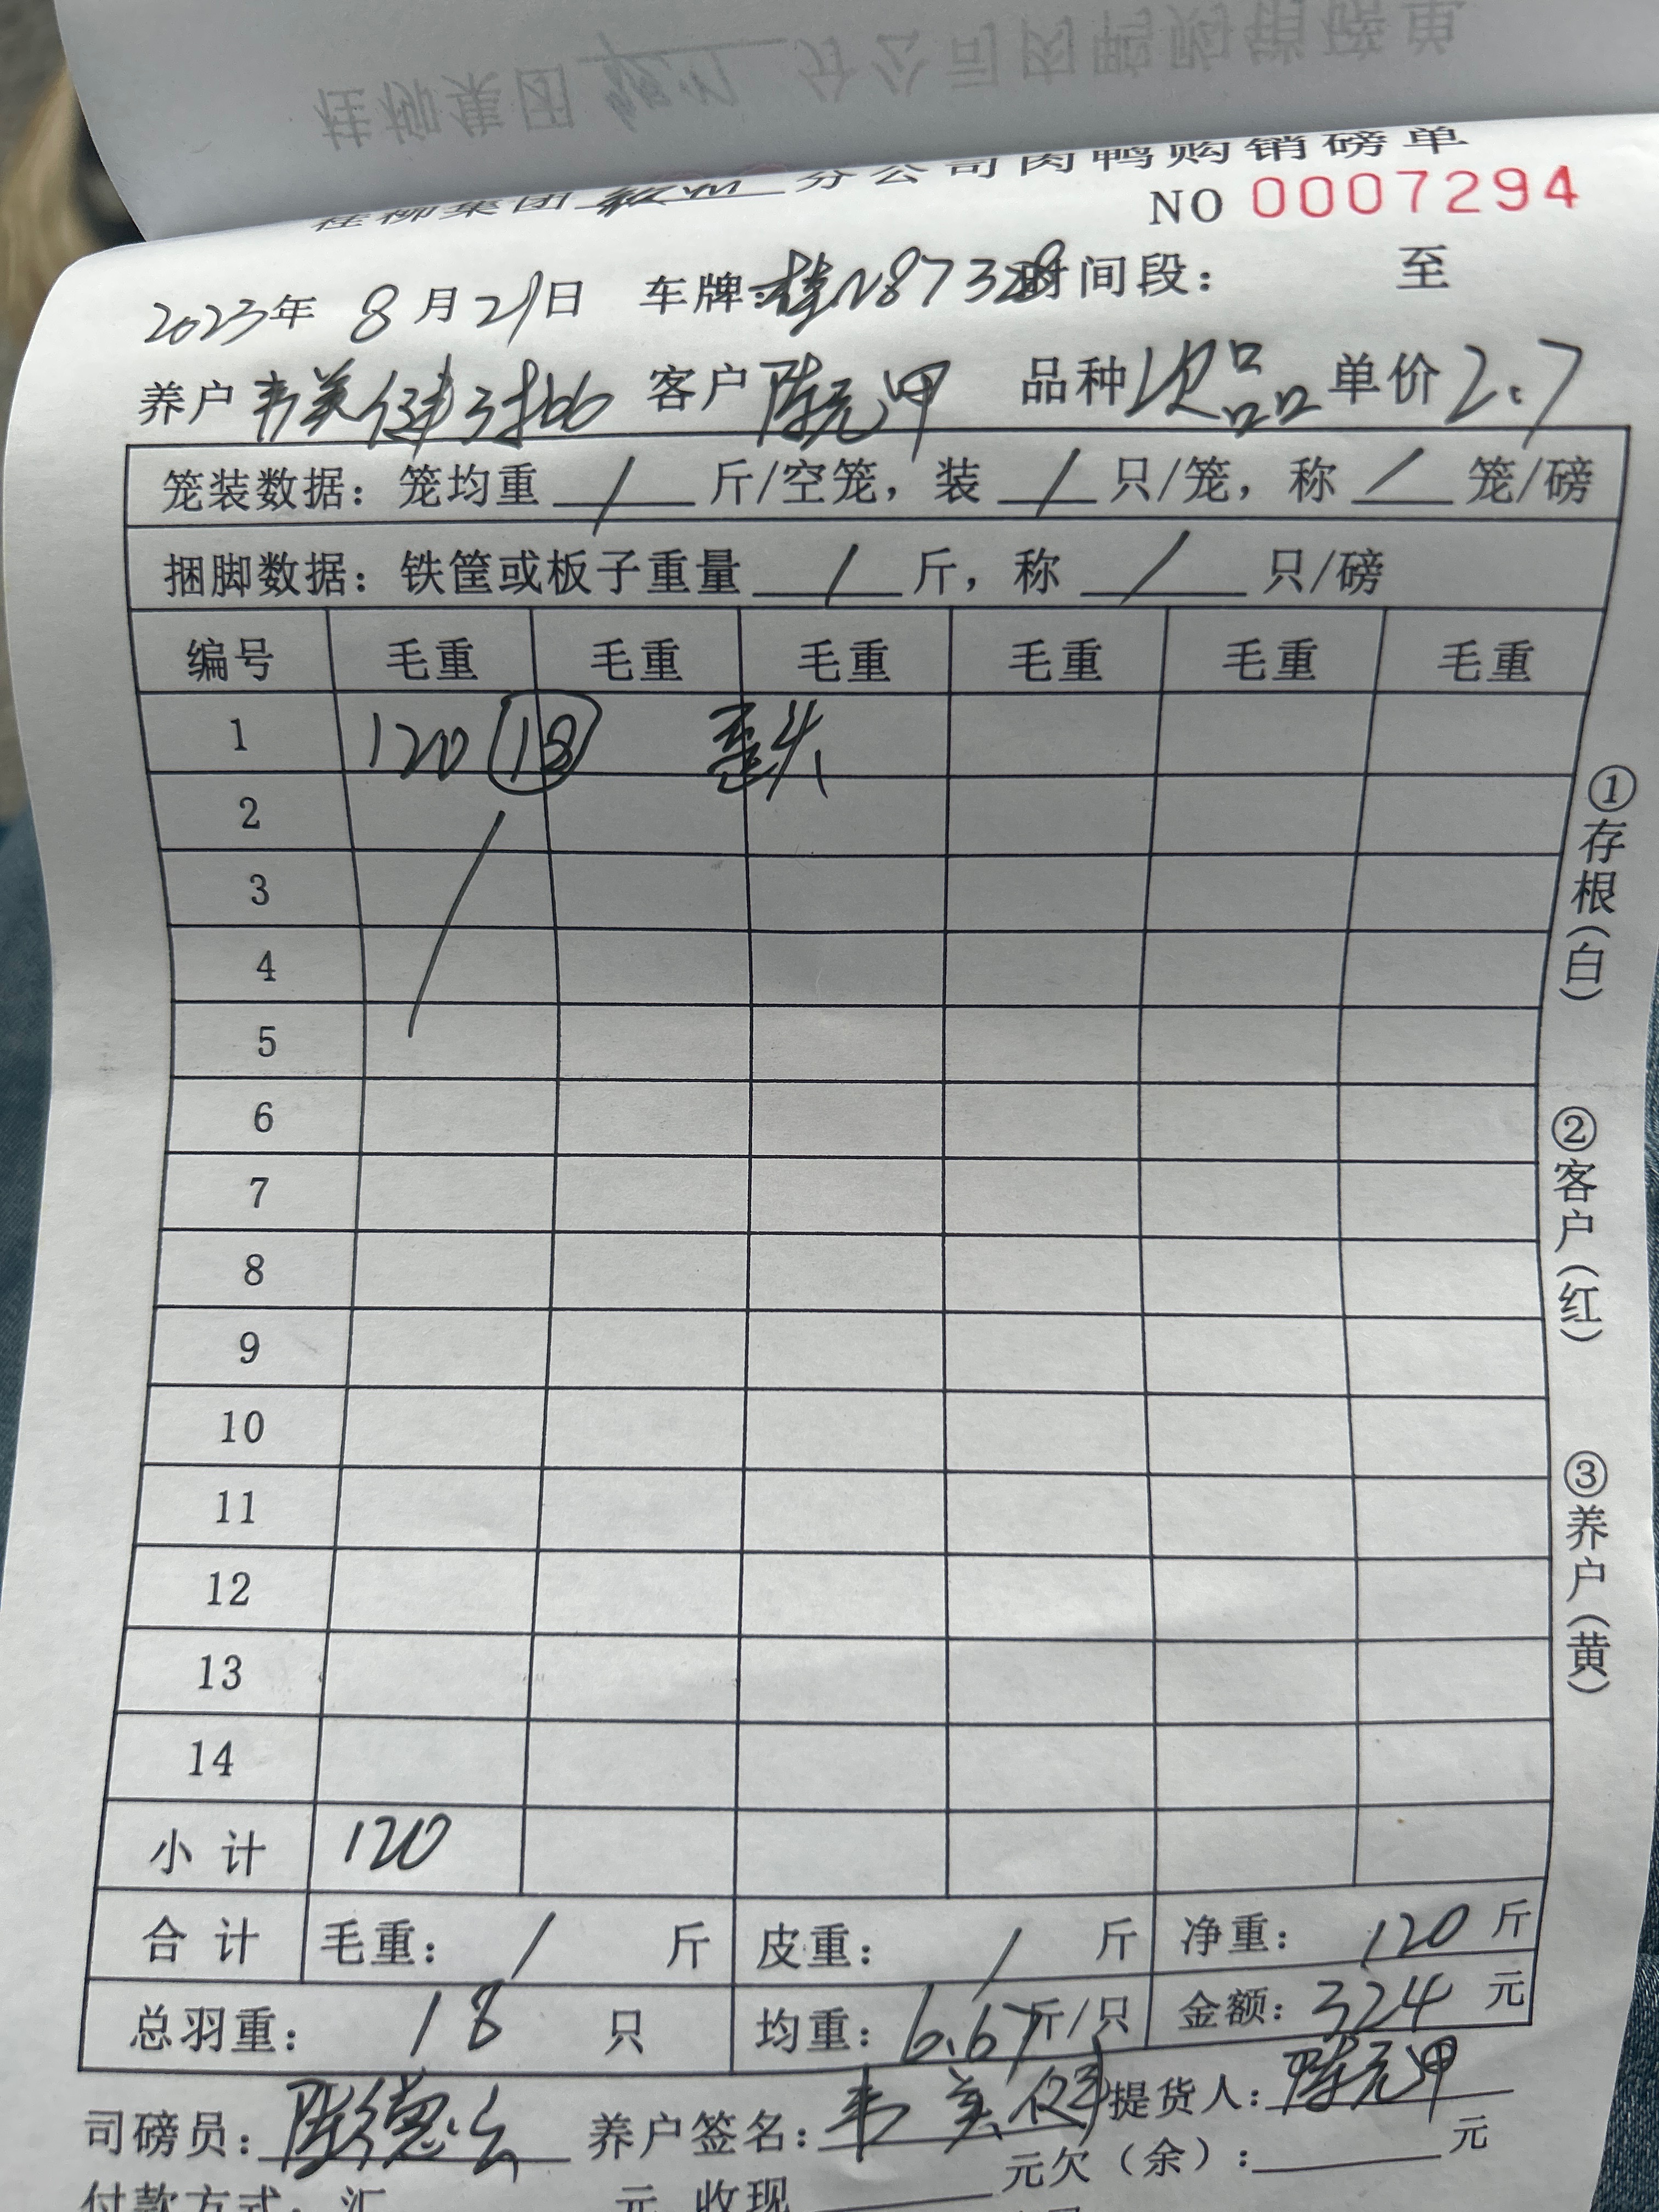 桂柳集团 分公司肉鸭购销磅单
桂柳集团 分公司肉鸭购销磅单
NO 0007294
2023年 8月21日 车牌:桂N87328 时间段: 至
养户 韦美健 客户 陈元甲 品种 次品 单价 2.7
笼装数据: 笼均重 / 斤/空笼, 装 / 只/笼, 称 / 笼/磅
捆脚数据: 铁筐或板子重量 / 斤, 称 / 只/磅
编号 毛重 毛重 毛重 毛重 毛重 毛重
1 120 (18) 歪头
2
3
4
5
6
7
8
9
10
11
12
13
14
小计 120
合计 毛重: / 斤 皮重: / 斤 净重: 120 斤
总羽重: 18 只 均重: 6.67 斤/只 金额: 324 元
司磅员: 养户签名: 韦美健 提货人: 陈元甲
付款方式: 汇 元 收现 元欠(余): 元
①存根(白)
②客户(红)
③养户(黄)